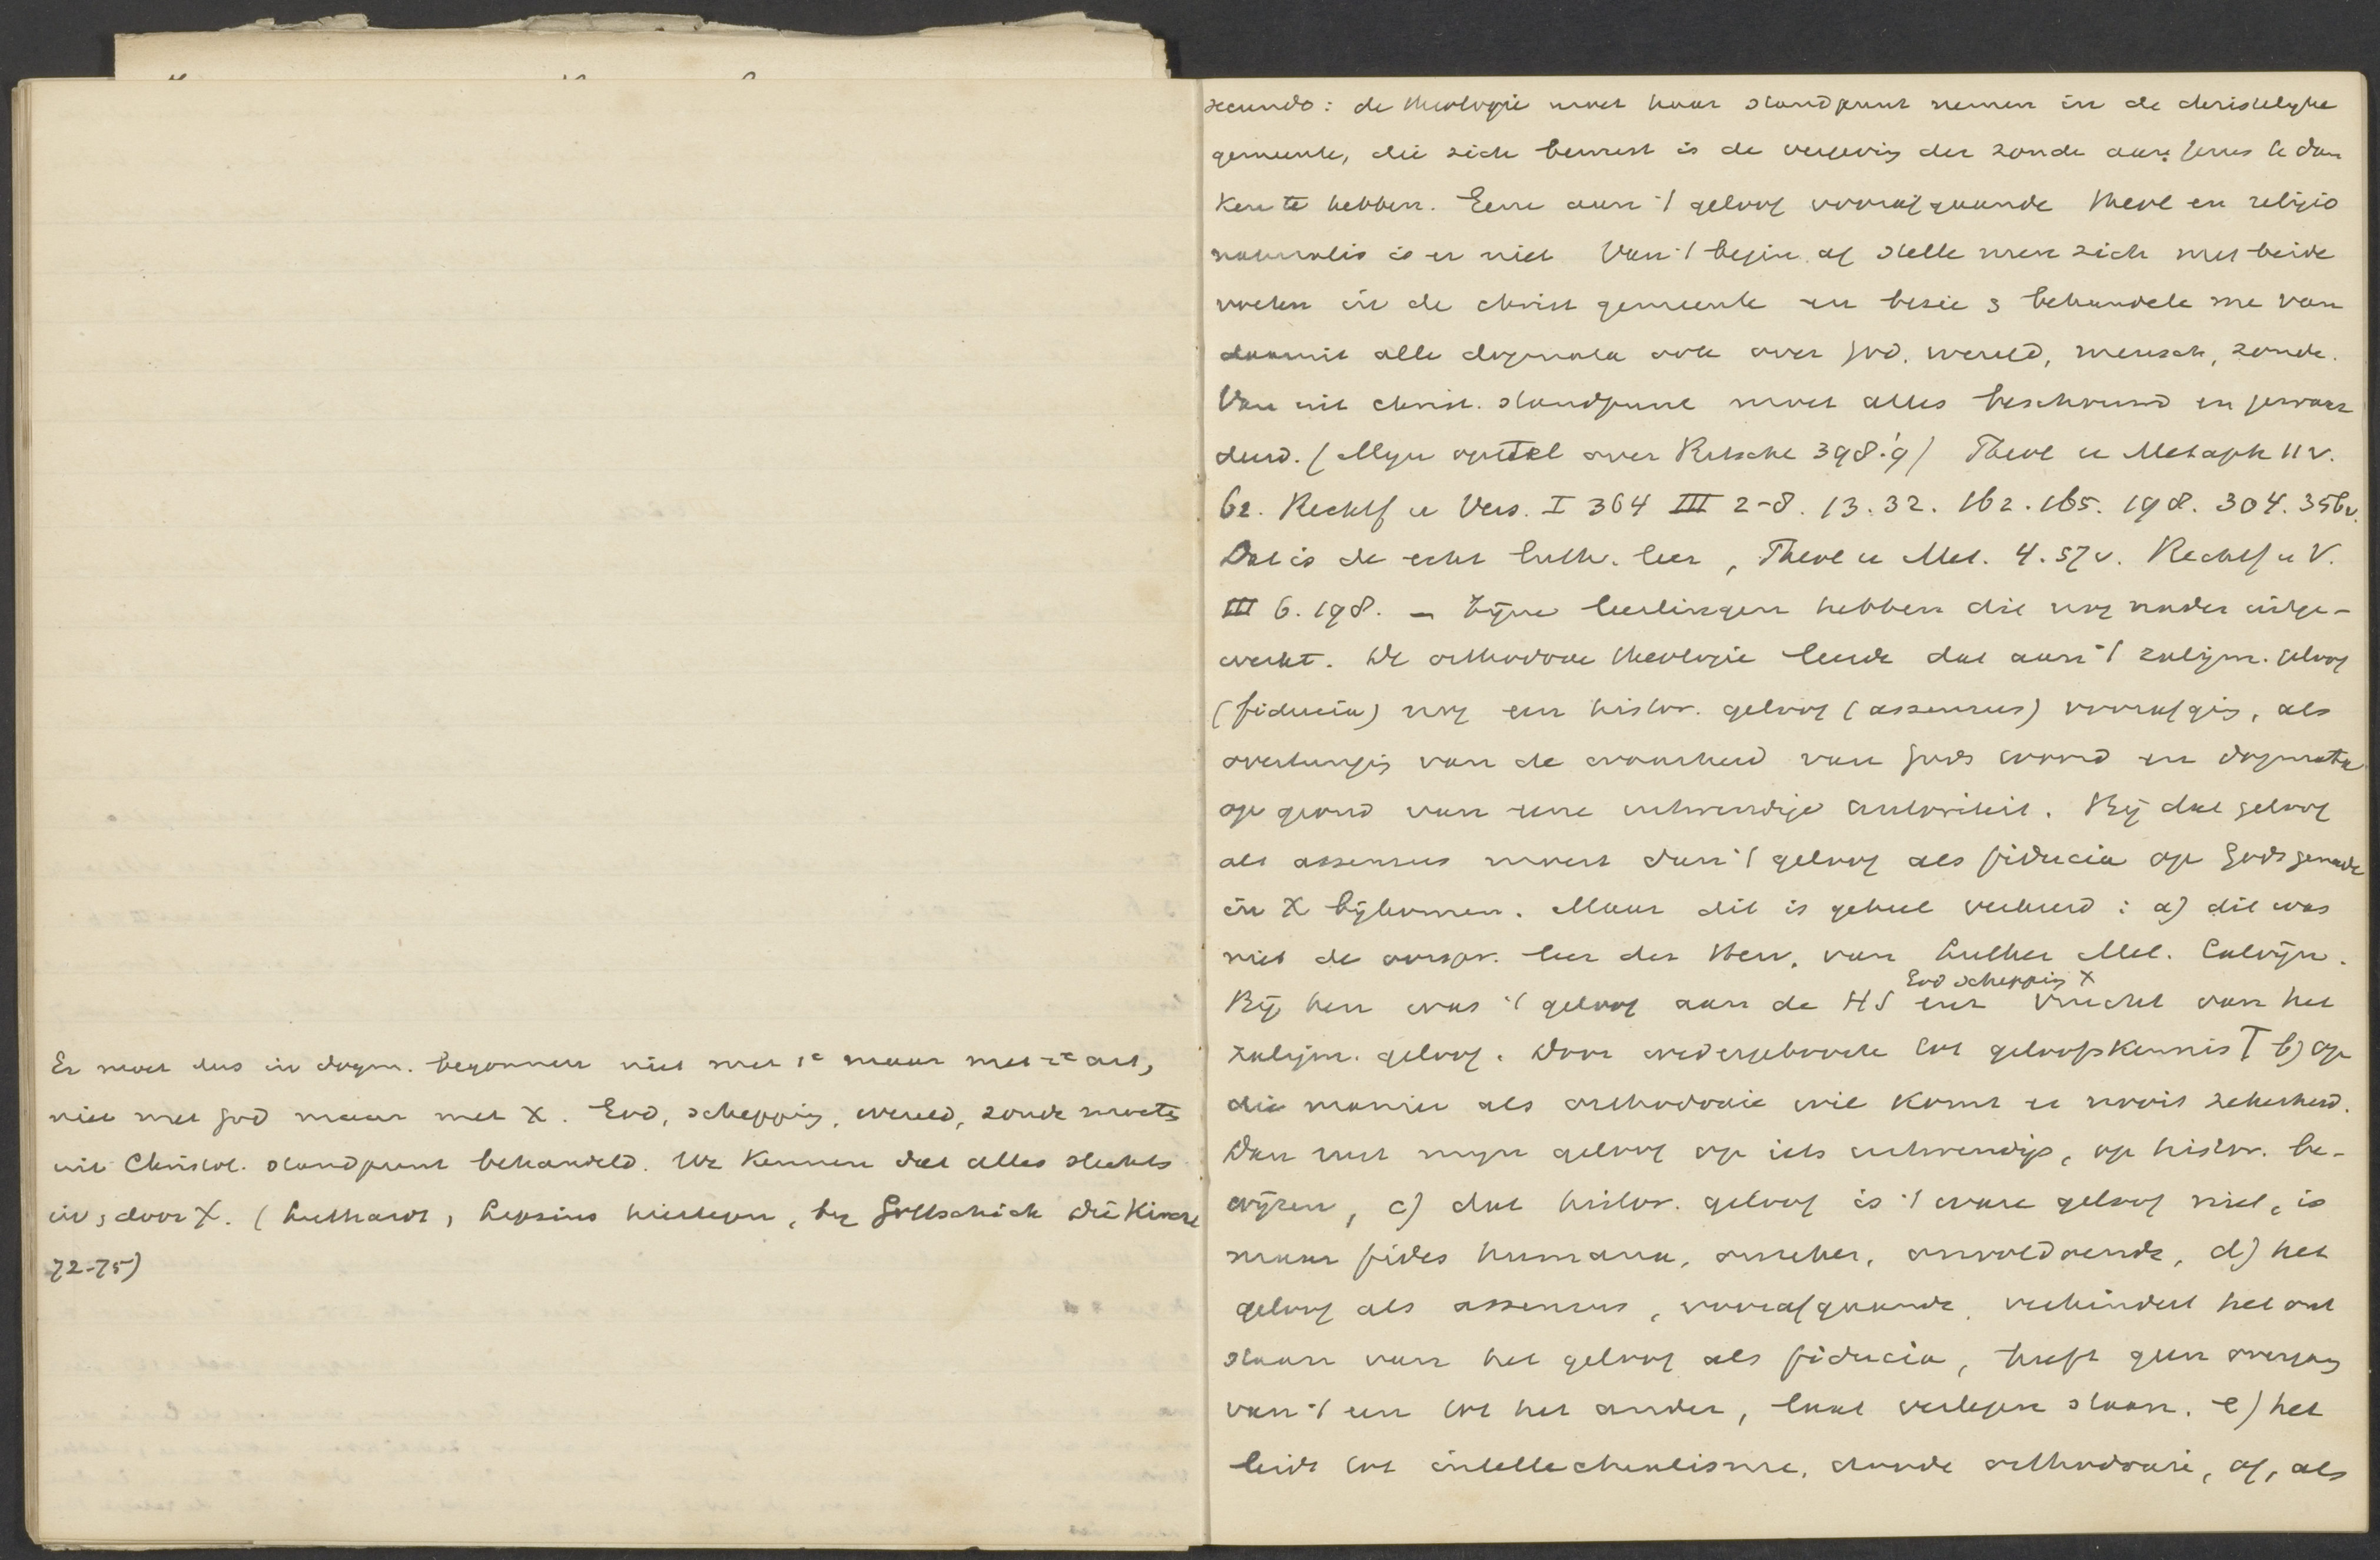 Er moet dus in dogm. begonnen niet met 1e maar met 2e art,
niet met God maar met X. God, schepping, wereld, zonde moete
uit Christol. standpunt behandeld. We kennen dat alles slechts
in, door X. (Luthardt, Lepsius hiertegen, bij Gottschick Die Kirchl
72-75)
secundo: de theologie moet haar standpunt nemen in de christelyke
gemeente, die zich bewust is de vergeving der zonde aan Jezus te dan
ken te hebben. Eene aan 't geloof voorafgaande theol en religio
naturalis is er niet Van 't begin af stelle men zich met beide
voeten in de christ gemeente en bezie & behandele me van
daaruit alle dogmata ook over God, wereld, mensch, zonde.
Van uit christ. standpunt moet alles beschouwd en gewaar
deerd. (Myn opstel over Ritschl 398.9) Theol u Metaph 11v.
62. Rechtf u Vers. I 364 III 2-8. 13. 32. 162. 165. 198. 304. 356v.
Dat is de echt luth. leer, Theol u Met. 4. 57v. Rechtf u V.
III 6. 198. – Zijne leerlingen hebben die nog nader uitge-
werkt. De orthodoxe theologie leerde dat aan 't zaligm. geloof
(fiducia) nog een histor. geloof (assensus) voorafging, als
overtuiging van de waarheid van Gods woord en dogmata
op grond van eene uitwendige autoriteit. Bij dat geloof
als assensus moest dan 't geloof als fiducia op Gods genade
in X bijkomen. Maar dit is geheel verkeerd: a) dit was
niet de oorspr. leer der Herv. van Luther Mel. Calvijn.
God schepping X
Bij hen was 't geloof aan de HS een vrucht van het
zaligm. geloof. Door wedergeboorte tot geloofskennis b) op
die manier als orthodoxie wil komt er nooit zekerheid.
Dan rust myn geloof op iets uitwendigs, op histor. be-
wijzen, c) dat histor. geloof is 't ware geloof niet, is
maar fides humana, onzeker, onvoldoende, d) het
geloof als assensus, voorafgaande, verhindert het ont
staan van het geloof als fiducia, heeft geen overgang
van 't een tot het ander, laat verlegen staan. e) het
leidt tot intellectualisme, doode orthodoxie, of, als